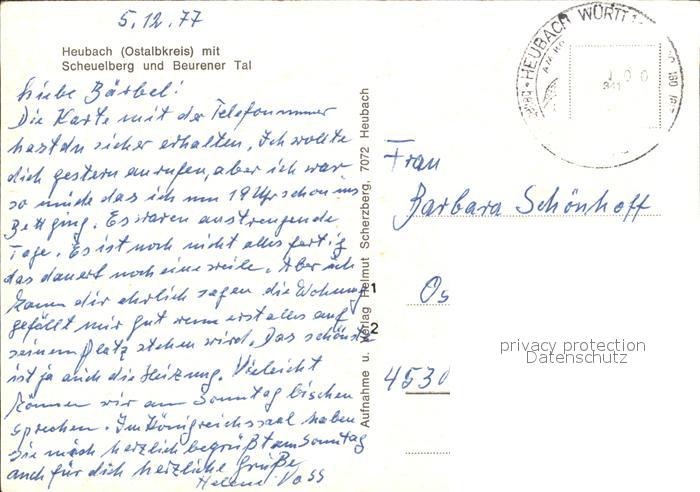 5.12.77
Heubach (Ostalbkreis) mit
Scheuelberg und Beurener Tal
Liebe Bärbel!
Die Karte mit der Telefonnummer
hast du sicher erhalten, Ich wollte
dich gestern anrufen, aber ich war
so müde das ich um 19 Uhr schon ins
Bett ging. Es waren anstrengende
Tage. Es ist noch nicht alles fertig
das dauert noch eine weile. Aber ich
kann dir ehrlich sagen die Wohnung
gefällt mir gut wenn erst alles auf
seinem Platz stehen wird. Das schönste
ist ja auch die Heizung. Vieleicht
können wir am Sonntag bischen
sprechen. Im Königreichssaal haben
sie mich herzlich begrüßt am Sonntag
auch für dich herzliche Grüße
Helene Voss
Aufnahme u. Verlag Helmut Scherzberg, 7072 Heubach
1
2
HEUBACH WÜRTT
100
Frau
Barbara Schönhoff
Os
4530
privacy protection
Datenschutz